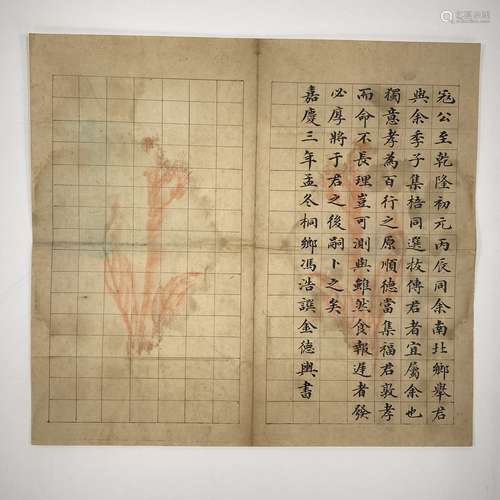 冦公至乾隆初元丙辰同余南北鄉舉君
與余季子集梧同選拔傳君者宜屬余也
獨意孝為百行之原順德當集福君敦孝
而命不長理豈可測與雖然食報遲者發
必厚將于君之後嗣卜之矣
嘉慶三年孟冬桐鄉馮浩譔金德輿書